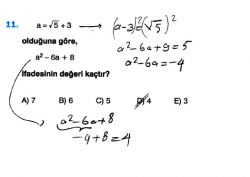 11. a = √5 + 3 → (a-3)² = (√5)²
olduğuna göre, a² - 6a + 9 = 5
a² - 6a + 8 a² - 6a = -4
ifadesinin değeri kaçtır?
A) 7 B) 6 C) 5 D) 4 E) 3
a² - 6a + 8
-4 + 8 = 4